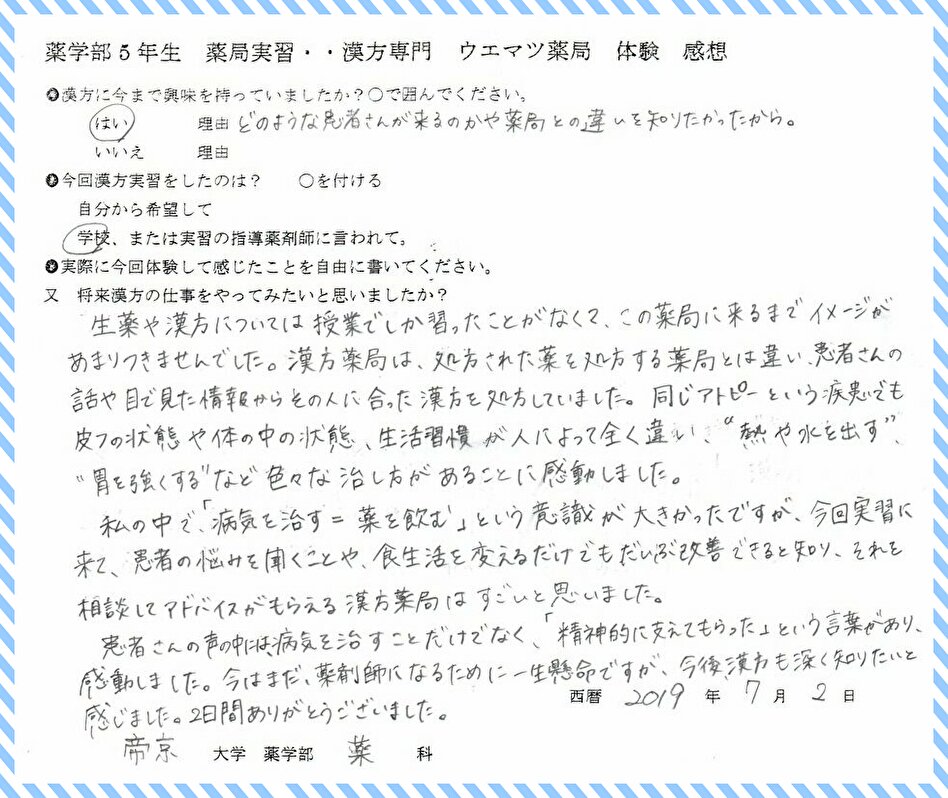 薬学部5年生　薬局実習・・漢方専門　ウエマツ薬局　体験　感想
✪漢方に今まで興味を持っていましたか？○で囲んでください。
はい　理由　どのような患者さんが来るのかや薬局との違いを知りたかったから。
いいえ　理由
✪今回漢方実習をしたのは？　○を付ける
自分から希望して
学校、または実習の指導薬剤師に言われて。
✪実際に今回体験して感じたことを自由に書いてください。
又　将来漢方の仕事をやってみたいと思いましたか？
生薬や漢方については授業でしか習ったことがなくて、この薬局に来るまでイメージが
あまりつきませんでした。漢方薬局は、処方された薬を処方する薬局とは違い、患者さんの
話や目で見た情報からその人に合った漢方を処方していました。同じアトピーという疾患でも
皮フの状態や体の中の状態、生活習慣が人によって全く違い、“熱や水を出す”、
“胃を強くする”など色々な治し方があることに感動しました。
私の中で、「病気を治す＝薬を飲む」という意識が大きかったですが、今回実習に
来て、患者の悩みを聞くことや、食生活を変えるだけでもだいぶ改善できると知り、それを
相談してアドバイスがもらえる漢方薬局はすごいと思いました。
患者さんの声の中には、病気を治すことだけでなく、「精神的に支えてもらった」という言葉があり、
感動しました。今はまだ、薬剤師になるために一生懸命ですが、今後漢方も深く知りたいと
西暦 2019 年 7 月 2 日
感じました。2日間ありがとうございました。
帝京 大学　薬学部　薬　科